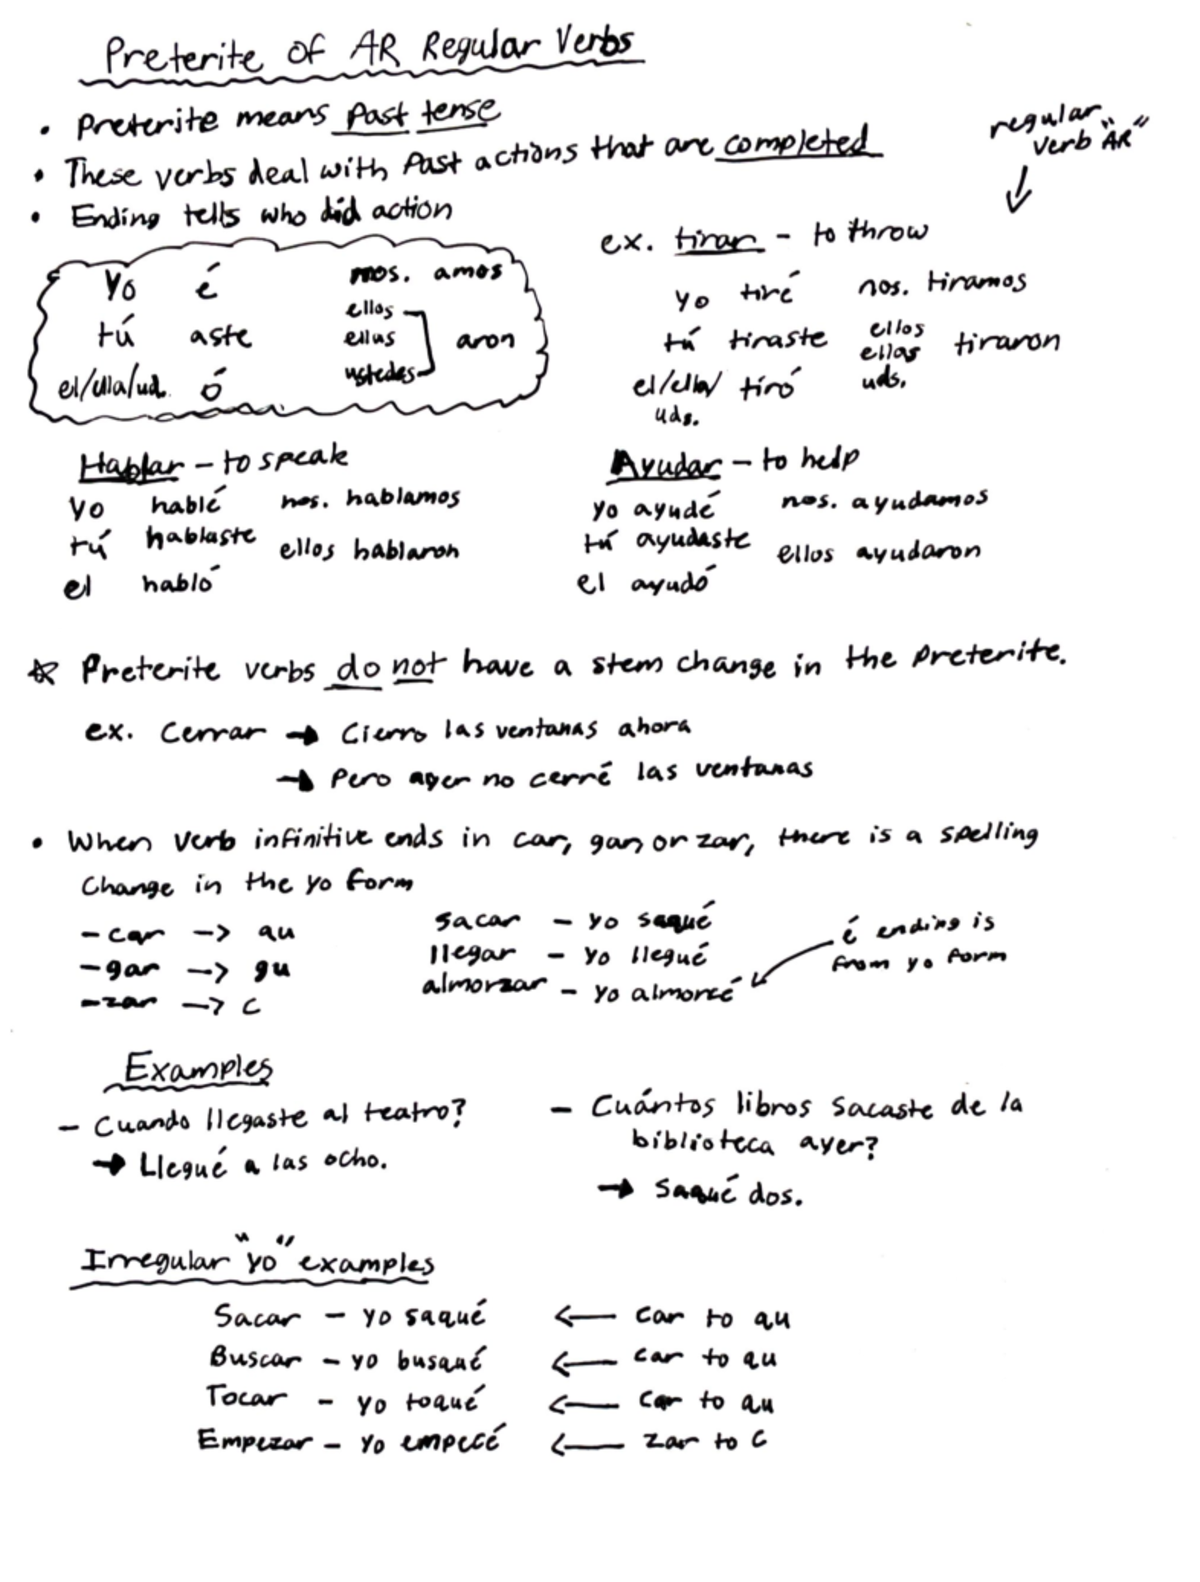 Preterite of AR Regular Verbs
• Preterite means Past tense
• These verbs deal with Past actions that are completed
• Ending tells who did action
regular
verb "AR"
yo é nos. amos
tú aste ellos ellas ustedes aron
el/ella/ud. ó
ex. tirar - to throw
yo tiré nos. tiramos
tú tiraste ellos ellas uds. tiraron
el/ella/ uds. tiró
Hablar - to speak
yo hablé nos. hablamos
tú hablaste ellos hablaron
el habló
Ayudar - to help
yo ayudé nos. ayudamos
tú ayudaste ellos ayudaron
el ayudó
☆ Preterite verbs do not have a stem change in the preterite.
ex. Cerrar → Cierro las ventanas ahora
→ Pero ayer no cerré las ventanas
• When verb infinitive ends in car, gar, or zar, there is a spelling
change in the yo form
- car -> qu
- gar -> gu
- zar -> c
sacar - yo saqué
llegar - yo llegué
almorzar - yo almorcé
é ending is
from yo form
Examples
- Cuando llegaste al teatro?
→ Llegué a las ocho.
- Cuántos libros sacaste de la
biblioteca ayer?
→ Saqué dos.
Irregular "yo" examples
Sacar - yo saqué ← car to qu
Buscar - yo busqué ← car to qu
Tocar - yo toqué ← car to qu
Empezar - yo empecé ← zar to c